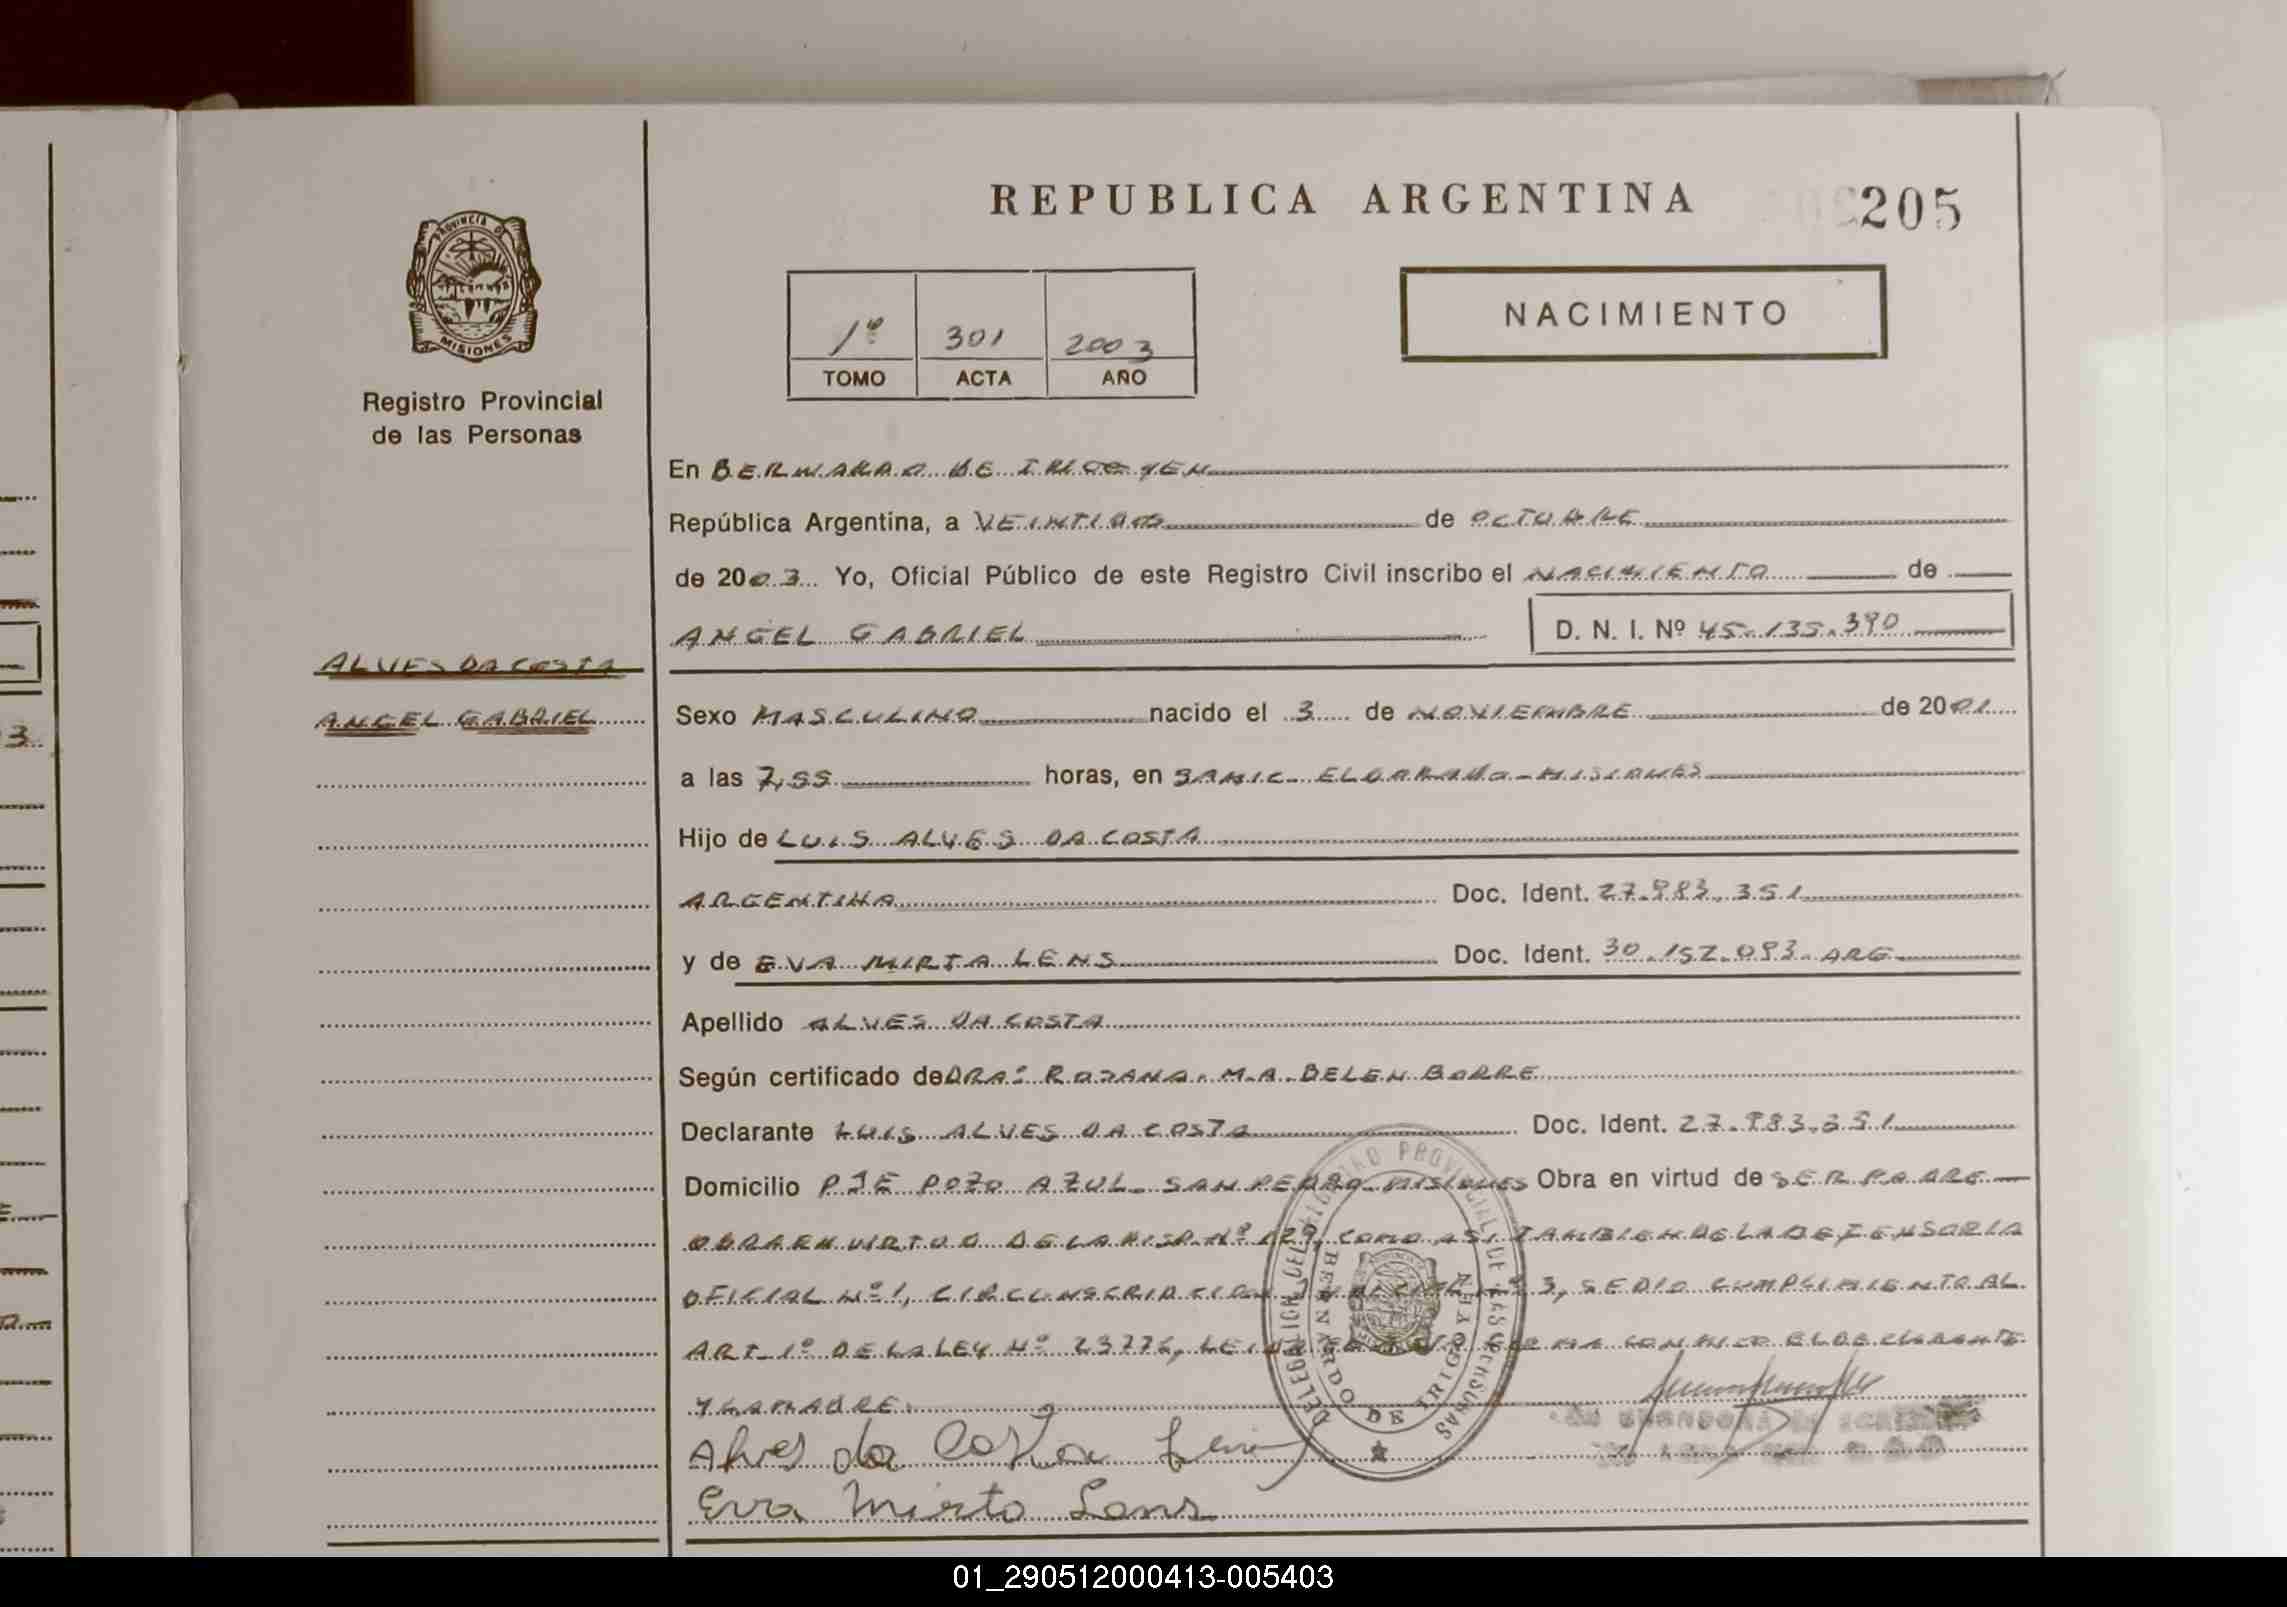 REPUBLICA ARGENTINA
205
PROVINCIA DE
MISIONES
Registro Provincial
de las Personas
1º 301 2003
TOMO ACTA AÑO
NACIMIENTO
En BERNARDO DE IRIGOYEN
República Argentina, a VEINTIDOS de OCTUBRE
de 2003 Yo, Oficial Público de este Registro Civil inscribo el NACIMIENTO de
ANGEL GABRIEL D. N. I. Nº 45.135.390
ALVES DA COSTA
ANGEL GABRIEL
Sexo MASCULINO nacido el 3 de NOVIEMBRE de 2001
a las 7,55 horas, en SAMIC - ELDORADO - MISIONES
Hijo de LUIS ALVES DA COSTA
ARGENTINA Doc. Ident. 27.983.351
y de EVA MIRTA LENS Doc. Ident. 30.152.093 - ARG
Apellido ALVES DA COSTA
Según certificado de DRA: ROSANA. M.A. BELEN BORRE
Declarante LUIS ALVES DA COSTA Doc. Ident. 27.983.351
Domicilio PJE POZO AZUL - SAN PEDRO - MISIONES Obra en virtud de SER PADRE
OBRA EN VIRTUD DE LA DISP. Nº 129, COMO ASI TAMBIEN DE LA DEFENSORIA
OFICIAL Nº 1, CIRCUNSCRIPCION JUDICIAL Nº 3, SE DIO CUMPLIMIENTO AL
ART. 1º DE LA LEY Nº 23776, LEIDA FIRMA CONMIGO EL DECLARANTE
Y LA MADRE.
Alves da Costa Luis
Eva Mirta Lens
DELEGACION DEL REGISTRO PROVINCIAL DE LAS PERSONAS
BERNARDO DE IRIGOYEN
01_290512000413-005403